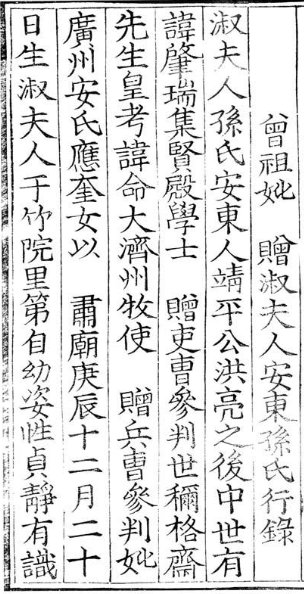 曾祖妣 贈淑夫人安東孫氏行錄
淑夫人孫氏安東人靖平公洪亮之後中世有
諱肇瑞集賢殿學士 贈吏曹參判世稱格齋
先生皇考諱命大濟州牧使 贈兵曹參判妣
廣州安氏應奎女以 肅廟庚辰十二月二十
日生淑夫人于竹院里第自幼姿性貞靜有識